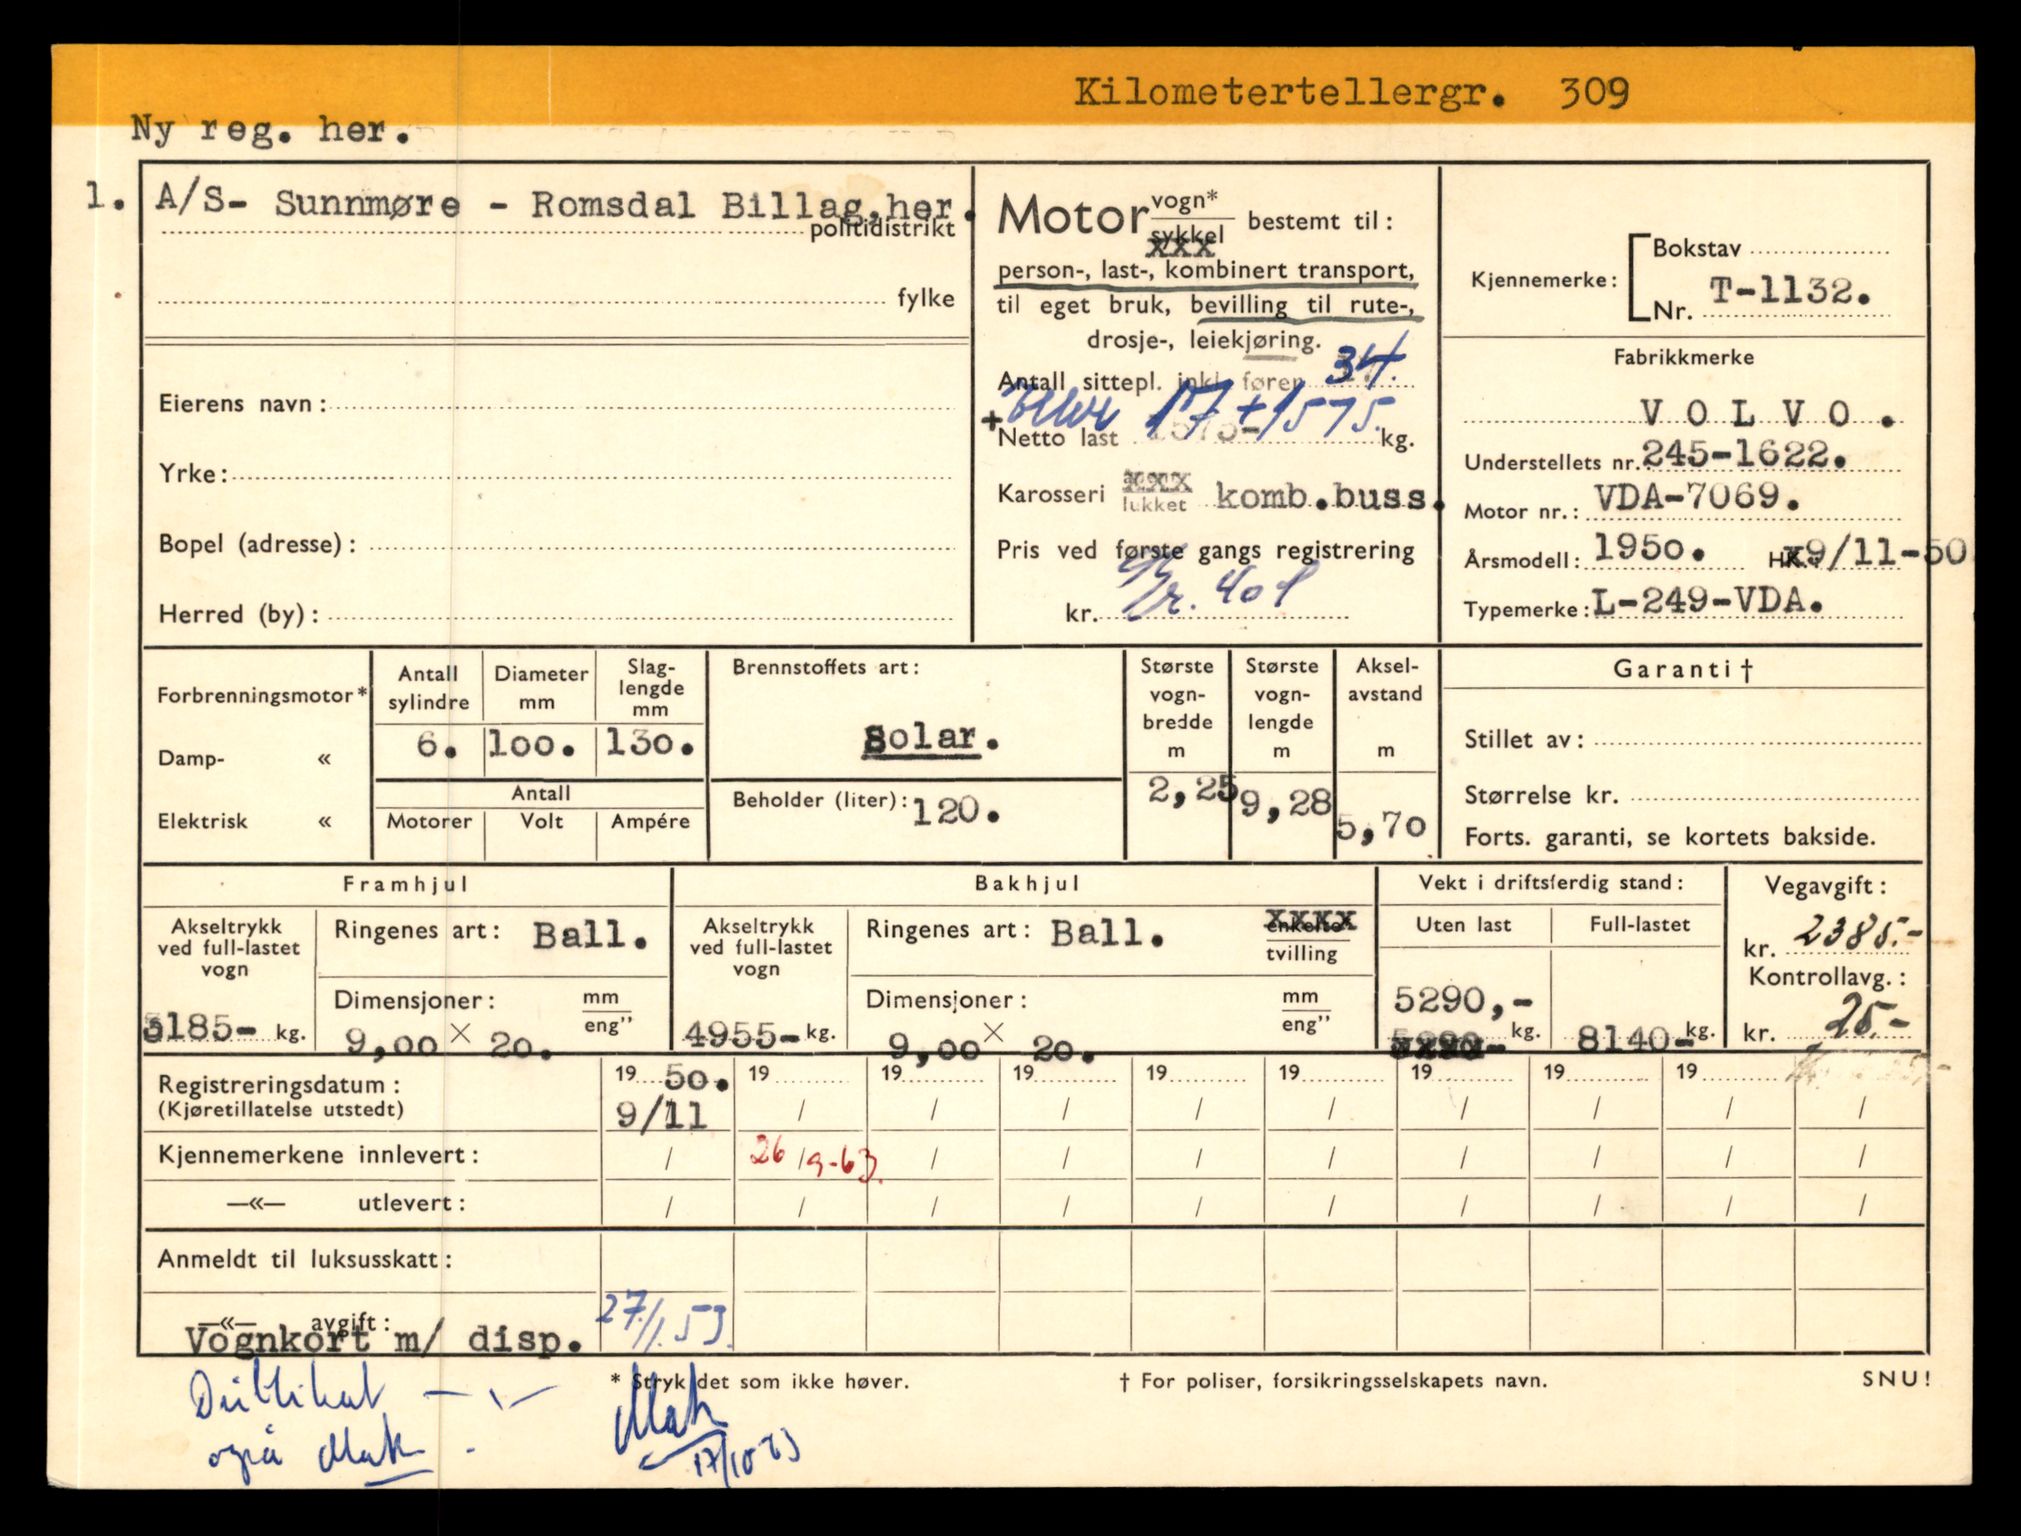 Kilometertellergr. 309
Ny reg. her.
1. A/S- Sunnmøre - Romsdal Billag, her.
politidistrikt
fylke
Eierens navn:
Yrke:
Bopel (adresse):
Herred (by):
Motor vogn* sykkel bestemt til:
xxx
person-, last-, kombinert transport,
til eget bruk, bevilling til rute-,
drosje-, leiekjøring.
Antall sittepl. inkl. fører 34.
+ eller 17 + 1575.
Netto last 1575- kg.
Karosseri xxxx lukket komb.buss.
Pris ved første gangs registrering
kr. Gr. 401
Bokstav
Kjennemerke:
Nr. T-1132.
Fabrikkmerke
VOLVO.
Understellets nr. 245-1622.
Motor nr.: VDA-7069.
Årsmodell: 1950. HK. x9/11-50
Typemerke: L-249-VDA.
Forbrenningsmotor*
Damp- «
Elektrisk «
Antall sylindre Diameter mm Slag-lengde mm
6. 100. 130.
Antall
Motorer Volt Ampére
Brennstoffets art:
Solar.
Beholder (liter): 120.
Største vogn-bredde m
2,25
Største vogn-lengde m
9,28
Aksel-avstand m
5,70
Garanti †
Stillet av:
Størrelse kr.
Forts. garanti, se kortets bakside.
Framhjul
Akseltrykk ved full-lastet vogn
3185- kg.
Ringenes art: Ball.
Dimensjoner: mm eng”
9,00 × 20.
Bakhjul
Akseltrykk ved full-lastet vogn
4955- kg.
Ringenes art: Ball. xxxx enkelte tvilling
Dimensjoner: mm eng”
9,00 × 20.
Vekt i driftsferdig stand:
Uten last Full-lastet
5290,-
kg. 8140- kg.
Vegavgift:
kr. 2385.-
Kontrollavg.:
kr. 25.-
Registreringsdatum: 19 50. 19 19 19 19 19 19 19 19
(Kjøretillatelse utstedt) 9/11 / / / / / / / / /
Kjennemerkene innlevert: / 26/9-63. / / / / / / / /
—«— utlevert: / / / / / / / / / /
Anmeldt til luksusskatt:
—«— avgift:
Vognkort m/ disp. 27/1.53.
* Stryk det som ikke høver.
† For poliser, forsikringsselskapets navn.
SNU!
også Mak
Mak
17/10